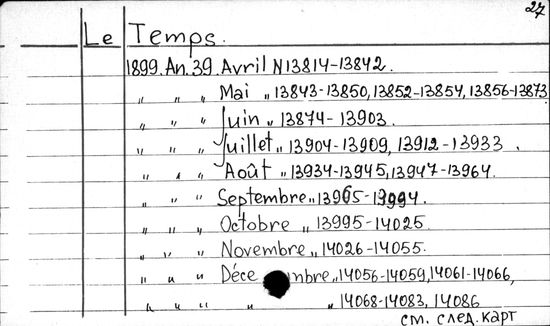 27
Le Temps.
1899. An. 39. Avril N 13814-13842.
" " " Mai " 13843-13850, 13852-13854, 13856-13873
" " " Juin " 13874-13903.
" " " Juillet " 13904-13909, 13912-13933.
" " " Août " 13934-13945, 13947-13964.
" " " Septembre " 13965-13994.
" " " Octobre " 13995-14025.
" " " Novembre " 14026-14055.
" " " Déce mbre " 14056-14059, 14061-14066,
" " " " " 14068-14083, 14086
см. след. карт